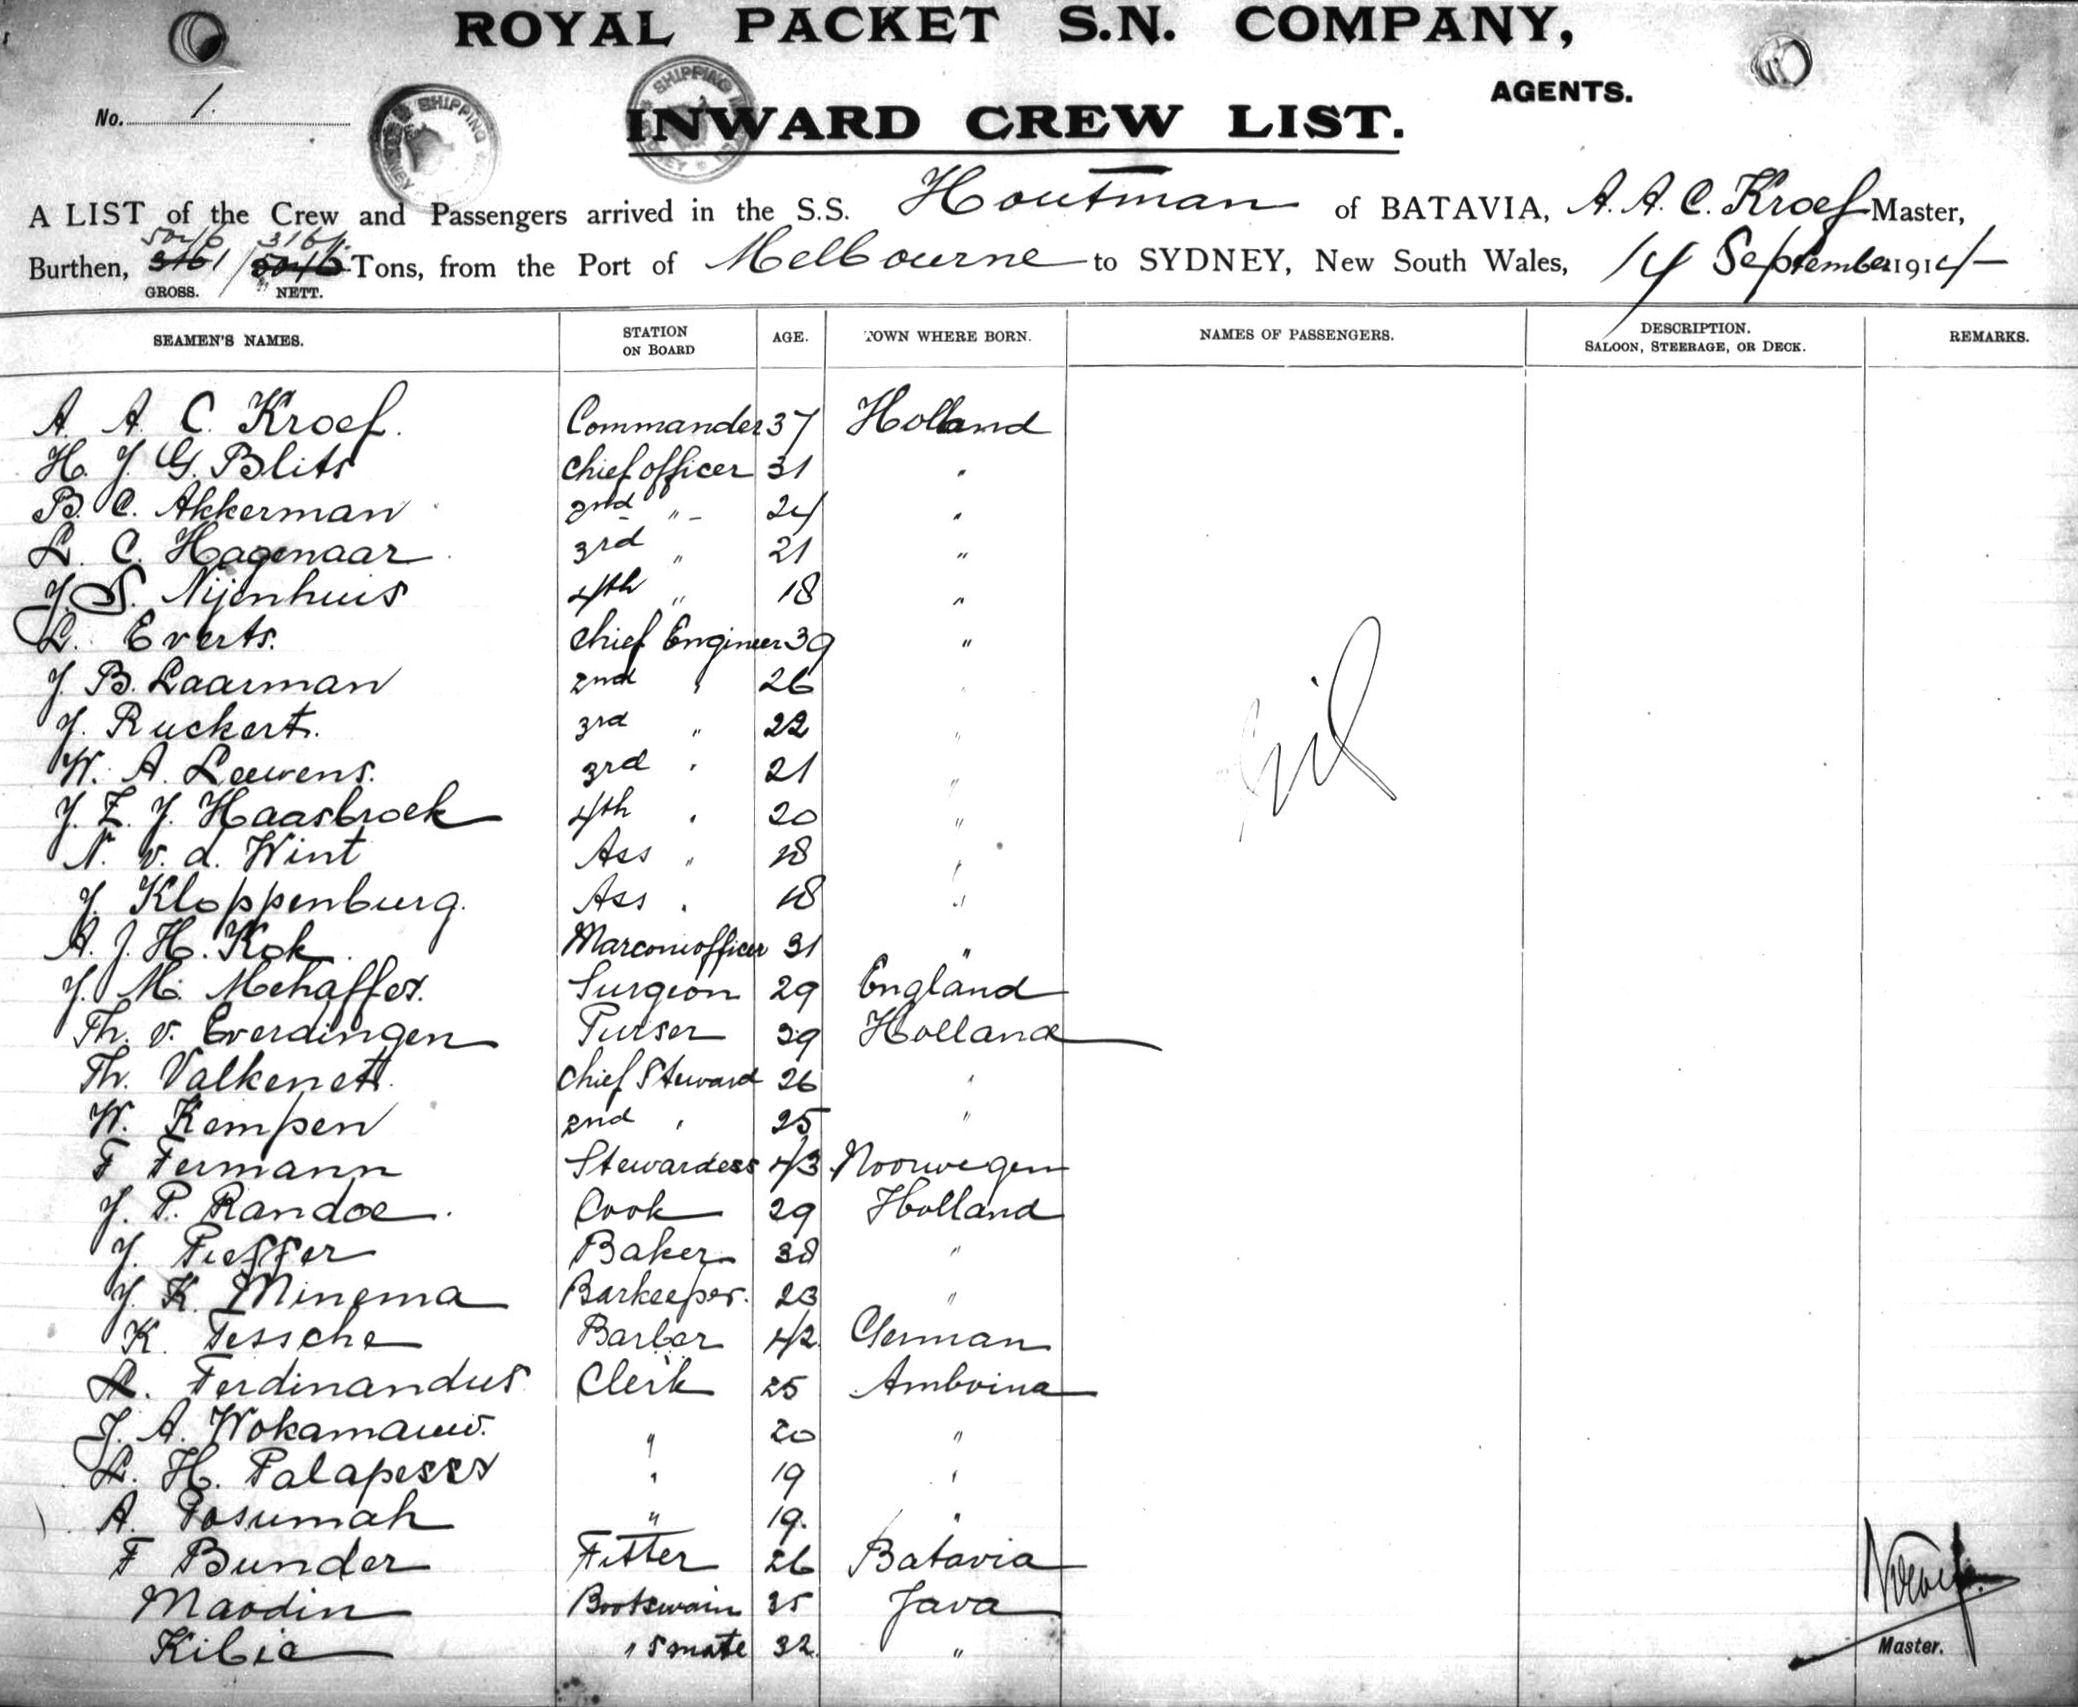 ROYAL PACKET S.N. COMPANY,
AGENTS.
No. 1.
INWARD CREW LIST.
A LIST of the Crew and Passengers arrived in the S.S. Houtman of BATAVIA, A. A. C. Kroef Master,
5040 3161
Burthen, 3161 / 5040 Tons, from the Port of Melbourne to SYDNEY, New South Wales, 14 September 1914
GROSS. NETT.
SEAMEN'S NAMES. STATION ON BOARD AGE. TOWN WHERE BORN. NAMES OF PASSENGERS. DESCRIPTION. SALOON, STEERAGE, OR DECK. REMARKS.
A. A. C. Kroef. Commander 37 Holland
H. J. G. Blits Chief officer 31 "
B. C. Akkerman 2nd " 24 "
L. C. Hagenaar 3rd " 21 "
J. S. Nijenhuis 4th " 18 "
L. Everts. Chief Engineer 39 "
J. B. Laarman 2nd " 26 "
J. Ruckert. 3rd " 22 "
W. A. Leewens. 3rd " 21 "
Nil
J. Z. J. Haasbroek 4th " 20 "
N. v. d. Wint Ass " 18 "
J. Kloppenburg. Ass " 18 "
A. J. H. Kok. Marconiofficer 31 "
J. M. Mehaffey. Surgeon 29 England
Th. v. Everdingen Purser 39 Holland
Th. Valkenet. Chief Steward 26 "
W. Kempen 2nd " 25 "
F Fermann Stewardess 43 Noorwegen
J. P. Randoe. Cook 29 Holland
J. Baker 38 "
J. K. Minema Barkeeper. 23 "
K. Tessche Barber 42 German
A. Ferdinandus Clerk 25 Amboina
J. A. Wokamauw. " 20 "
L. H. Palapessy " 19 "
A. Posumah " 19. "
F Bunder Fitter 26 Batavia
Maodin Bootswain 35 Java
Kibie " smate 32. "
Kroef
Master.